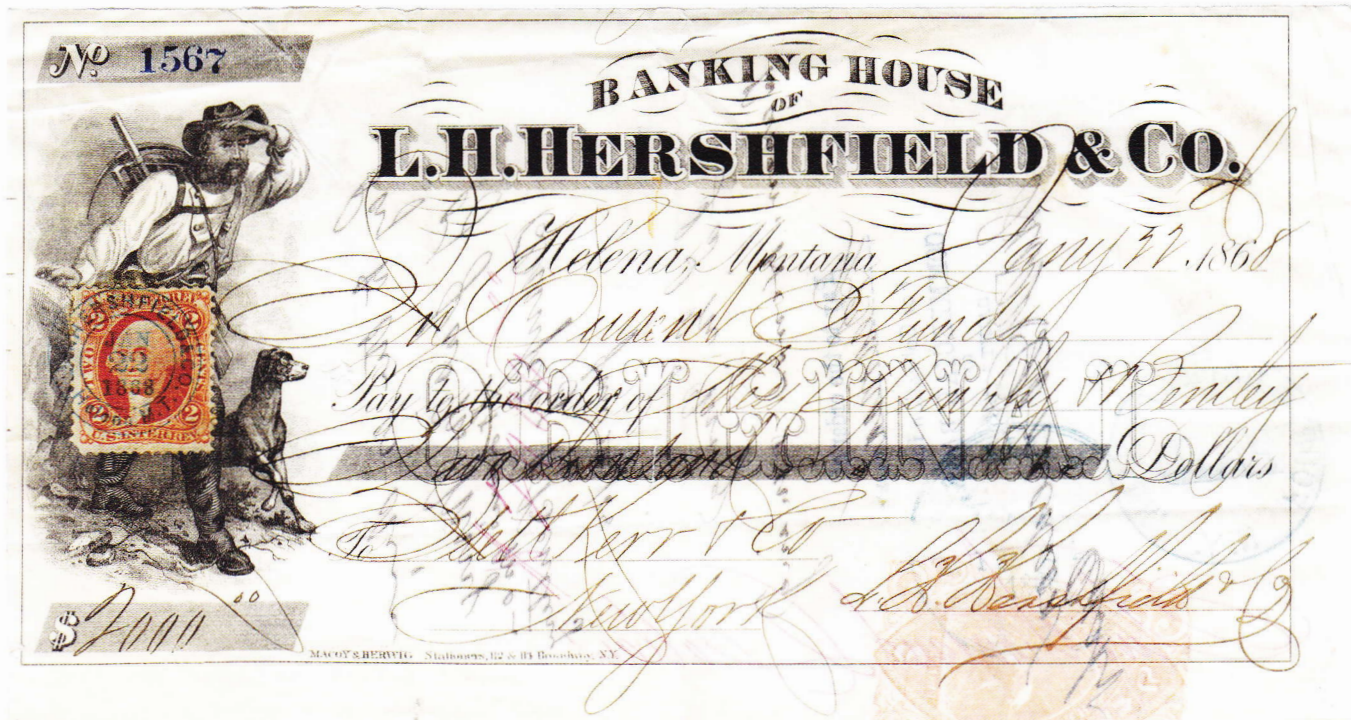 No 1567
BANKING HOUSE
OF
L.H. HERSHFIELD & CO.
Helena, Montana Jany 22, 1868
In Current Funds
ORIGINAL
Pay to the order of & Bentley
Two thousand Dollars
To Kerr & Co
New York L. H. Hershfield & Co
$ 2000 00
MACOY & HERWIG Stationers, 112 & 114 Broadway, N.Y.
2 2
TWO CENTS
JAN
22
1868
2 2
U.S. INTER. REV.